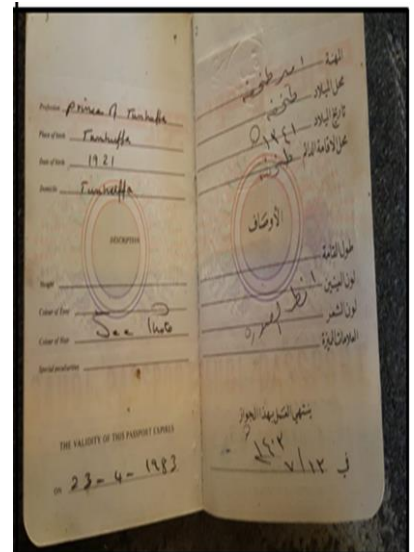 Profession Prince of Tunhuffa
Place of birth Tunhuffa
Date of birth 1921
Domicile Tunhuffa
DESCRIPTION
Height
Colour of Eyes
See Photo
Colour of Hair
Special peculiarities
THE VALIDITY OF THIS PASSPORT EXPIRES
ON 23-4-1983
2
المهنة امير طخفه
محل الميلاد طخفه
تاريخ الميلاد ١٣٤١
محل الاقامة الدائم طخفه
الأوصاف
طول القامة
لون العينين
انظر الصورة
لون الشعر
العلامات المميزة
ينتهي العمل بهذا الجواز
في ٧/١٢
١٤٠٣